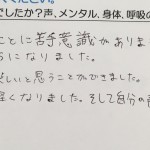 でしたか？声、メンタル、身体、呼吸の
ことに苦手意識がありま
うになりました。
しいと思うことができました。
くなりました。そして自分の